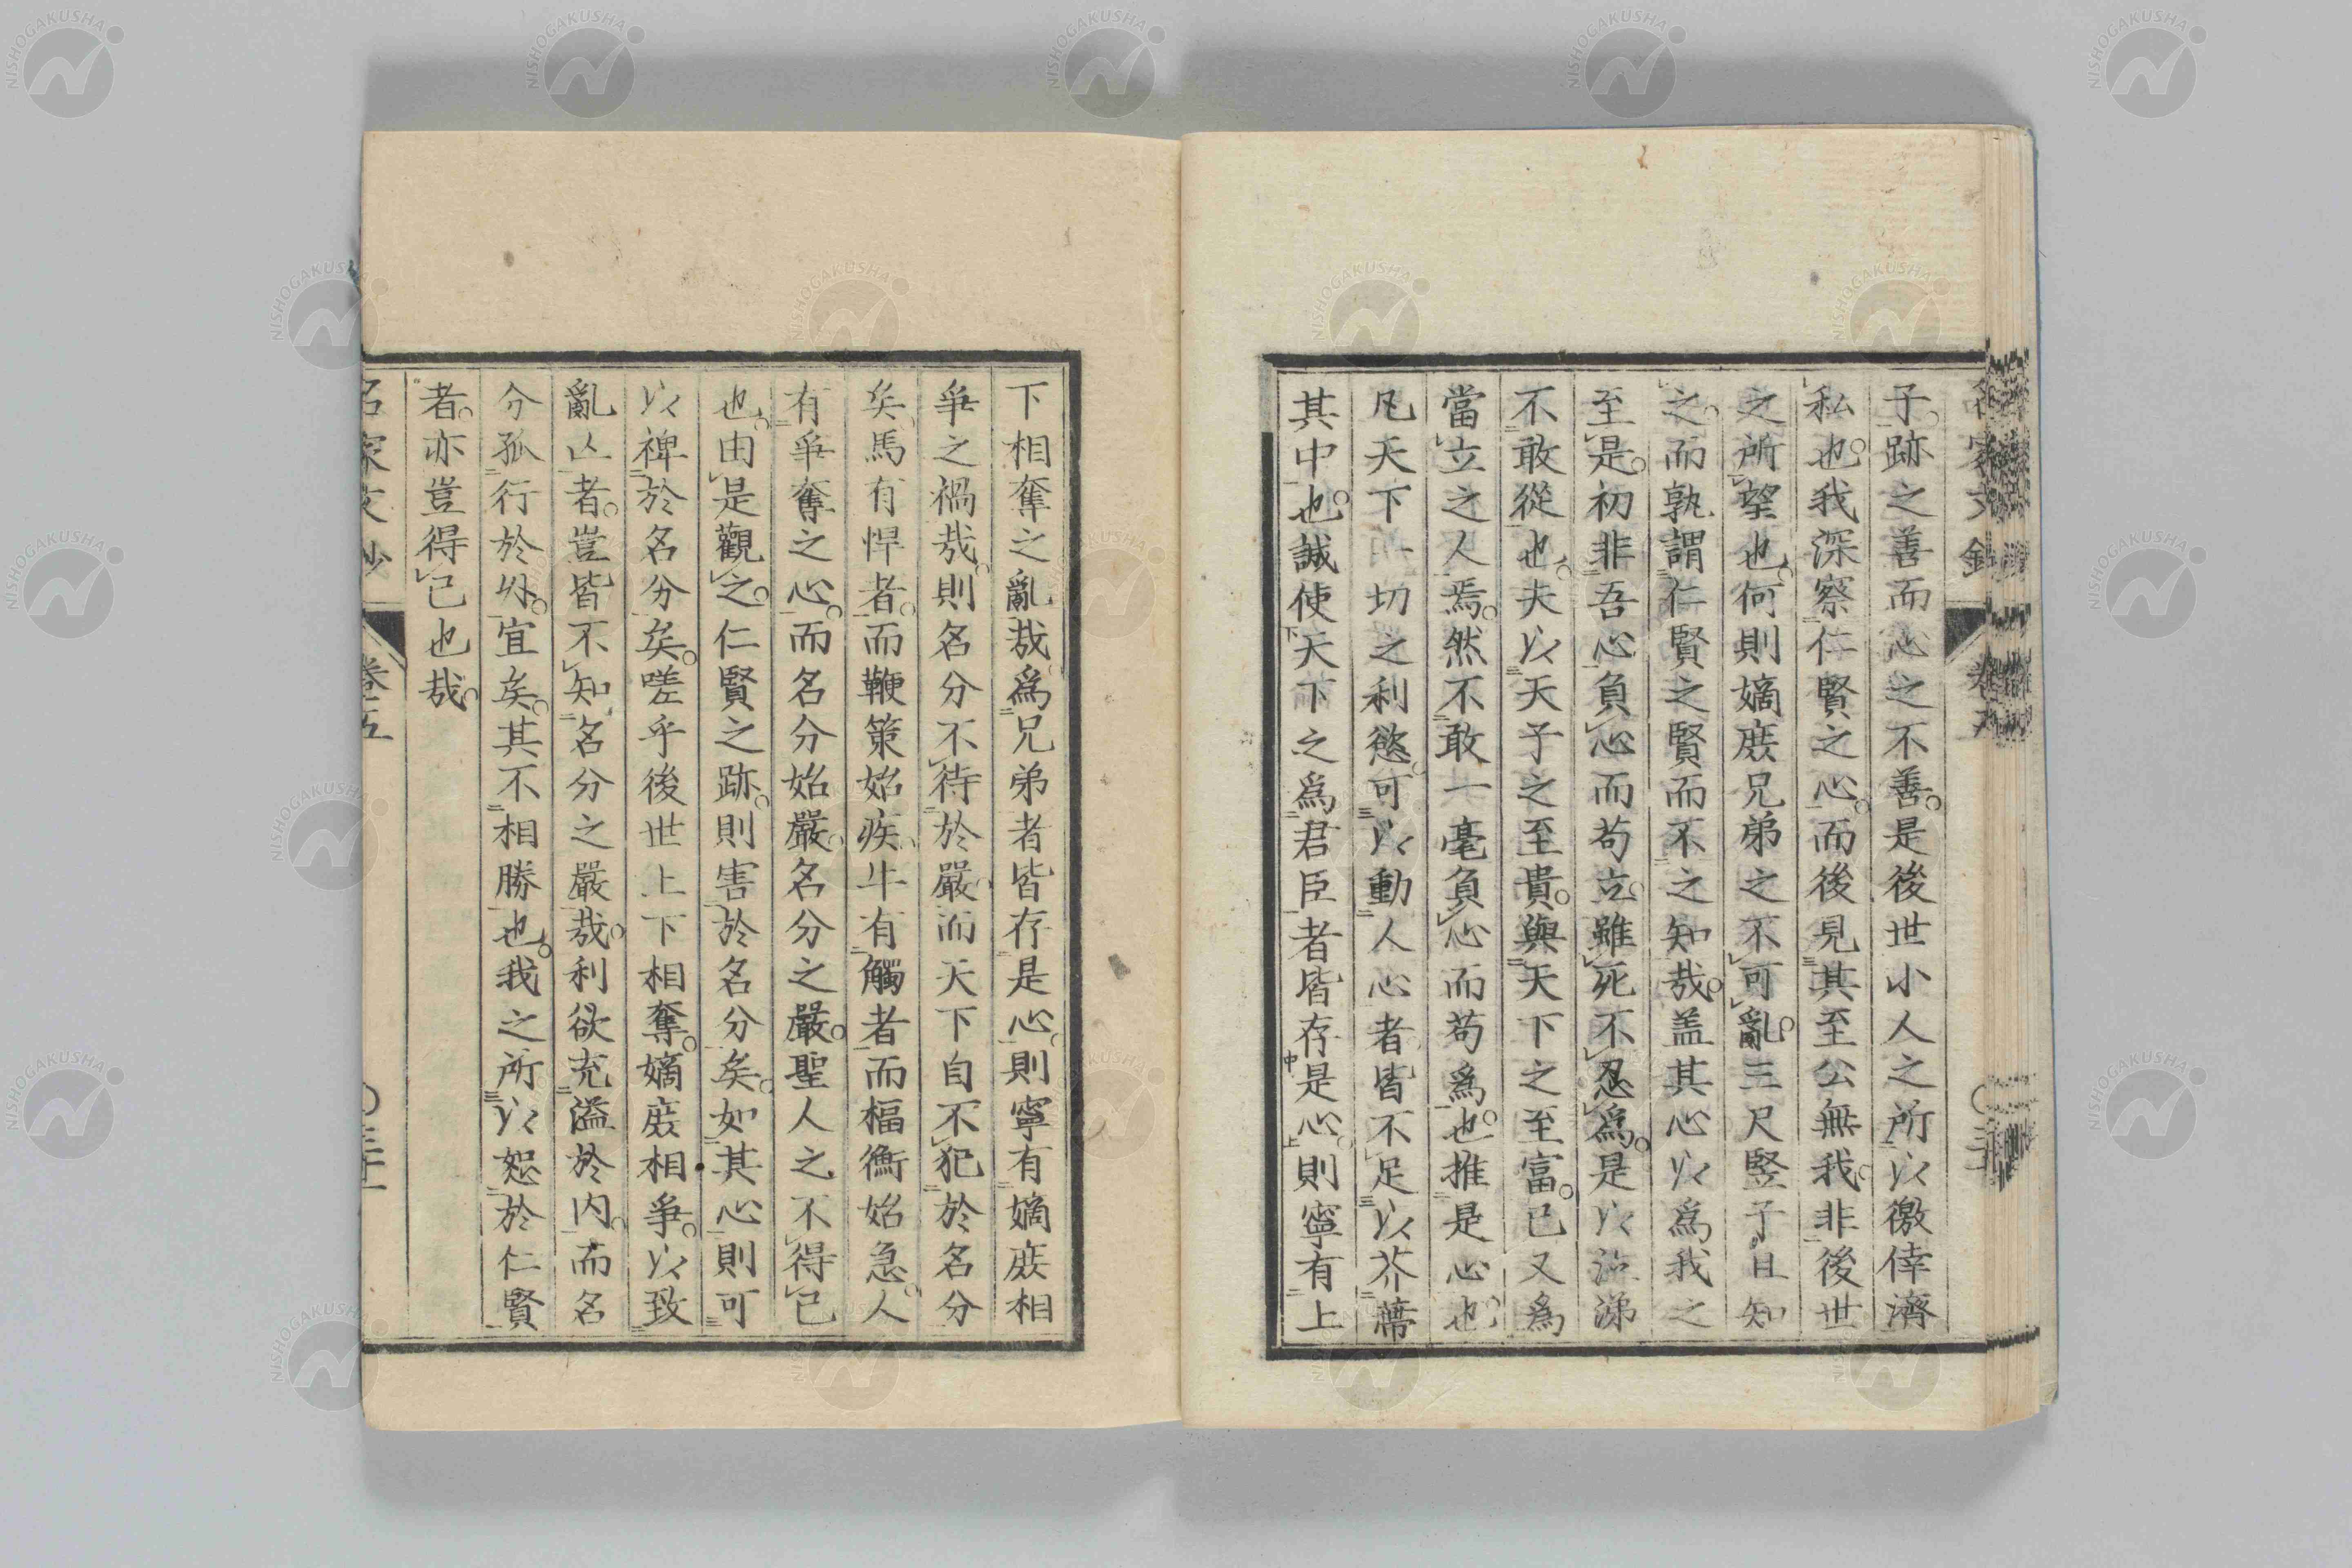 子。跡之善而心之不善。是後世小人之所以徼倖濟
私也。我深察仁賢之心。而後見其至公無我。非後世
之所望也。何則嫡庻兄弟之不可亂。三尺竪子且知
之。而孰謂仁賢之賢而不之知哉。盖其心以爲我之
至是。初非吾心負心而苟立。雖死不忍爲。是以沾涕
不敢從也。夫以天子之至貴。與天下之至富。已又爲
當立之人焉。然不敢一毫負心而苟爲也。推是心也。
凡天下一切之利慾。可以動人心者。皆不足以芥蔕
其中也。誠使天下之爲君臣者皆存是心。則寧有上
下相奪之亂哉。爲兄弟者皆存是心。則寧有嫡庻相
爭之禍哉。則名分不待於嚴。而天下自不犯於名分
矣。馬有悍者。而鞭策始疾。牛有觸者而楅衡始急。人
有爭奪之心。而名分始嚴。名分之嚴。聖人之不得已
也。由是觀之。仁賢之跡。則害於名分矣。如其心則可
以裨於名分矣。嗟乎後世上下相奪。嫡庻相爭。以致
亂亡者。豈皆不知名分之嚴哉。利欲充溢於内。而名
分孤行於外。宜矣。其不相勝也。我之所以恕於仁賢
者。亦豈得已也哉。
名家文抄
卷五